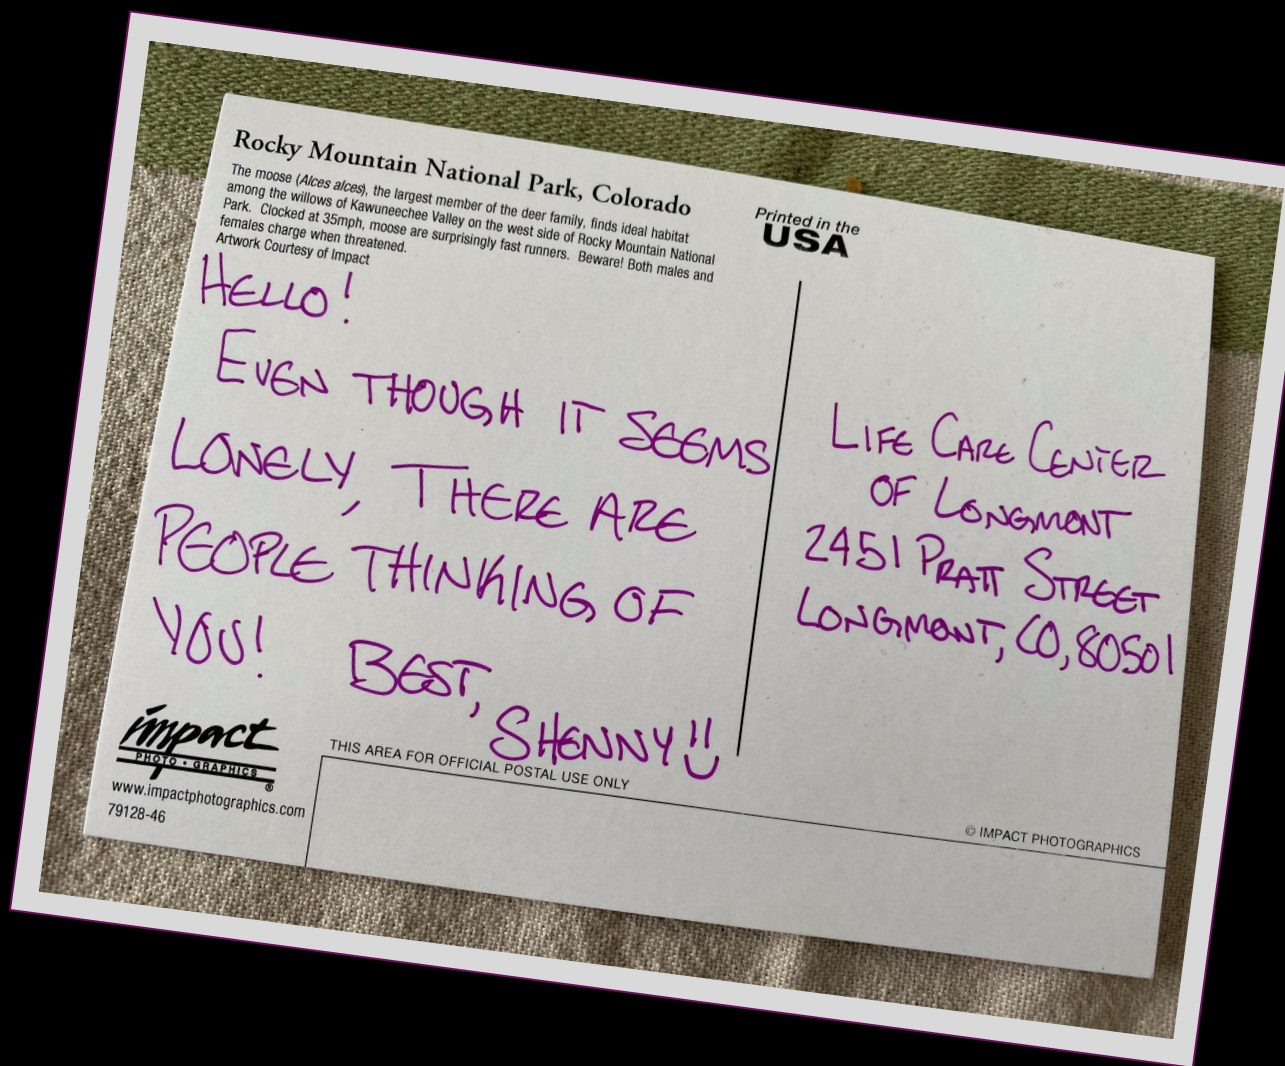 Rocky Mountain National Park, Colorado
The moose (Alces alces), the largest member of the deer family, finds ideal habitat
among the willows of Kawuneechee Valley on the west side of Rocky Mountain National
Park. Clocked at 35mph, moose are surprisingly fast runners. Beware! Both males and
females charge when threatened.
Artwork Courtesy of Impact
Printed in the
USA
HELLO!
EVEN THOUGH IT SEEMS
LONELY, THERE ARE
PEOPLE THINKING OF
YOU! BEST,
SHENNY!!
LIFE CARE CENTER
OF LONGMONT
2451 PRATT STREET
LONGMONT, CO, 80501
impact
PHOTO • GRAPHICS ®
www.impactphotographics.com
79128-46
THIS AREA FOR OFFICIAL POSTAL USE ONLY
© IMPACT PHOTOGRAPHICS